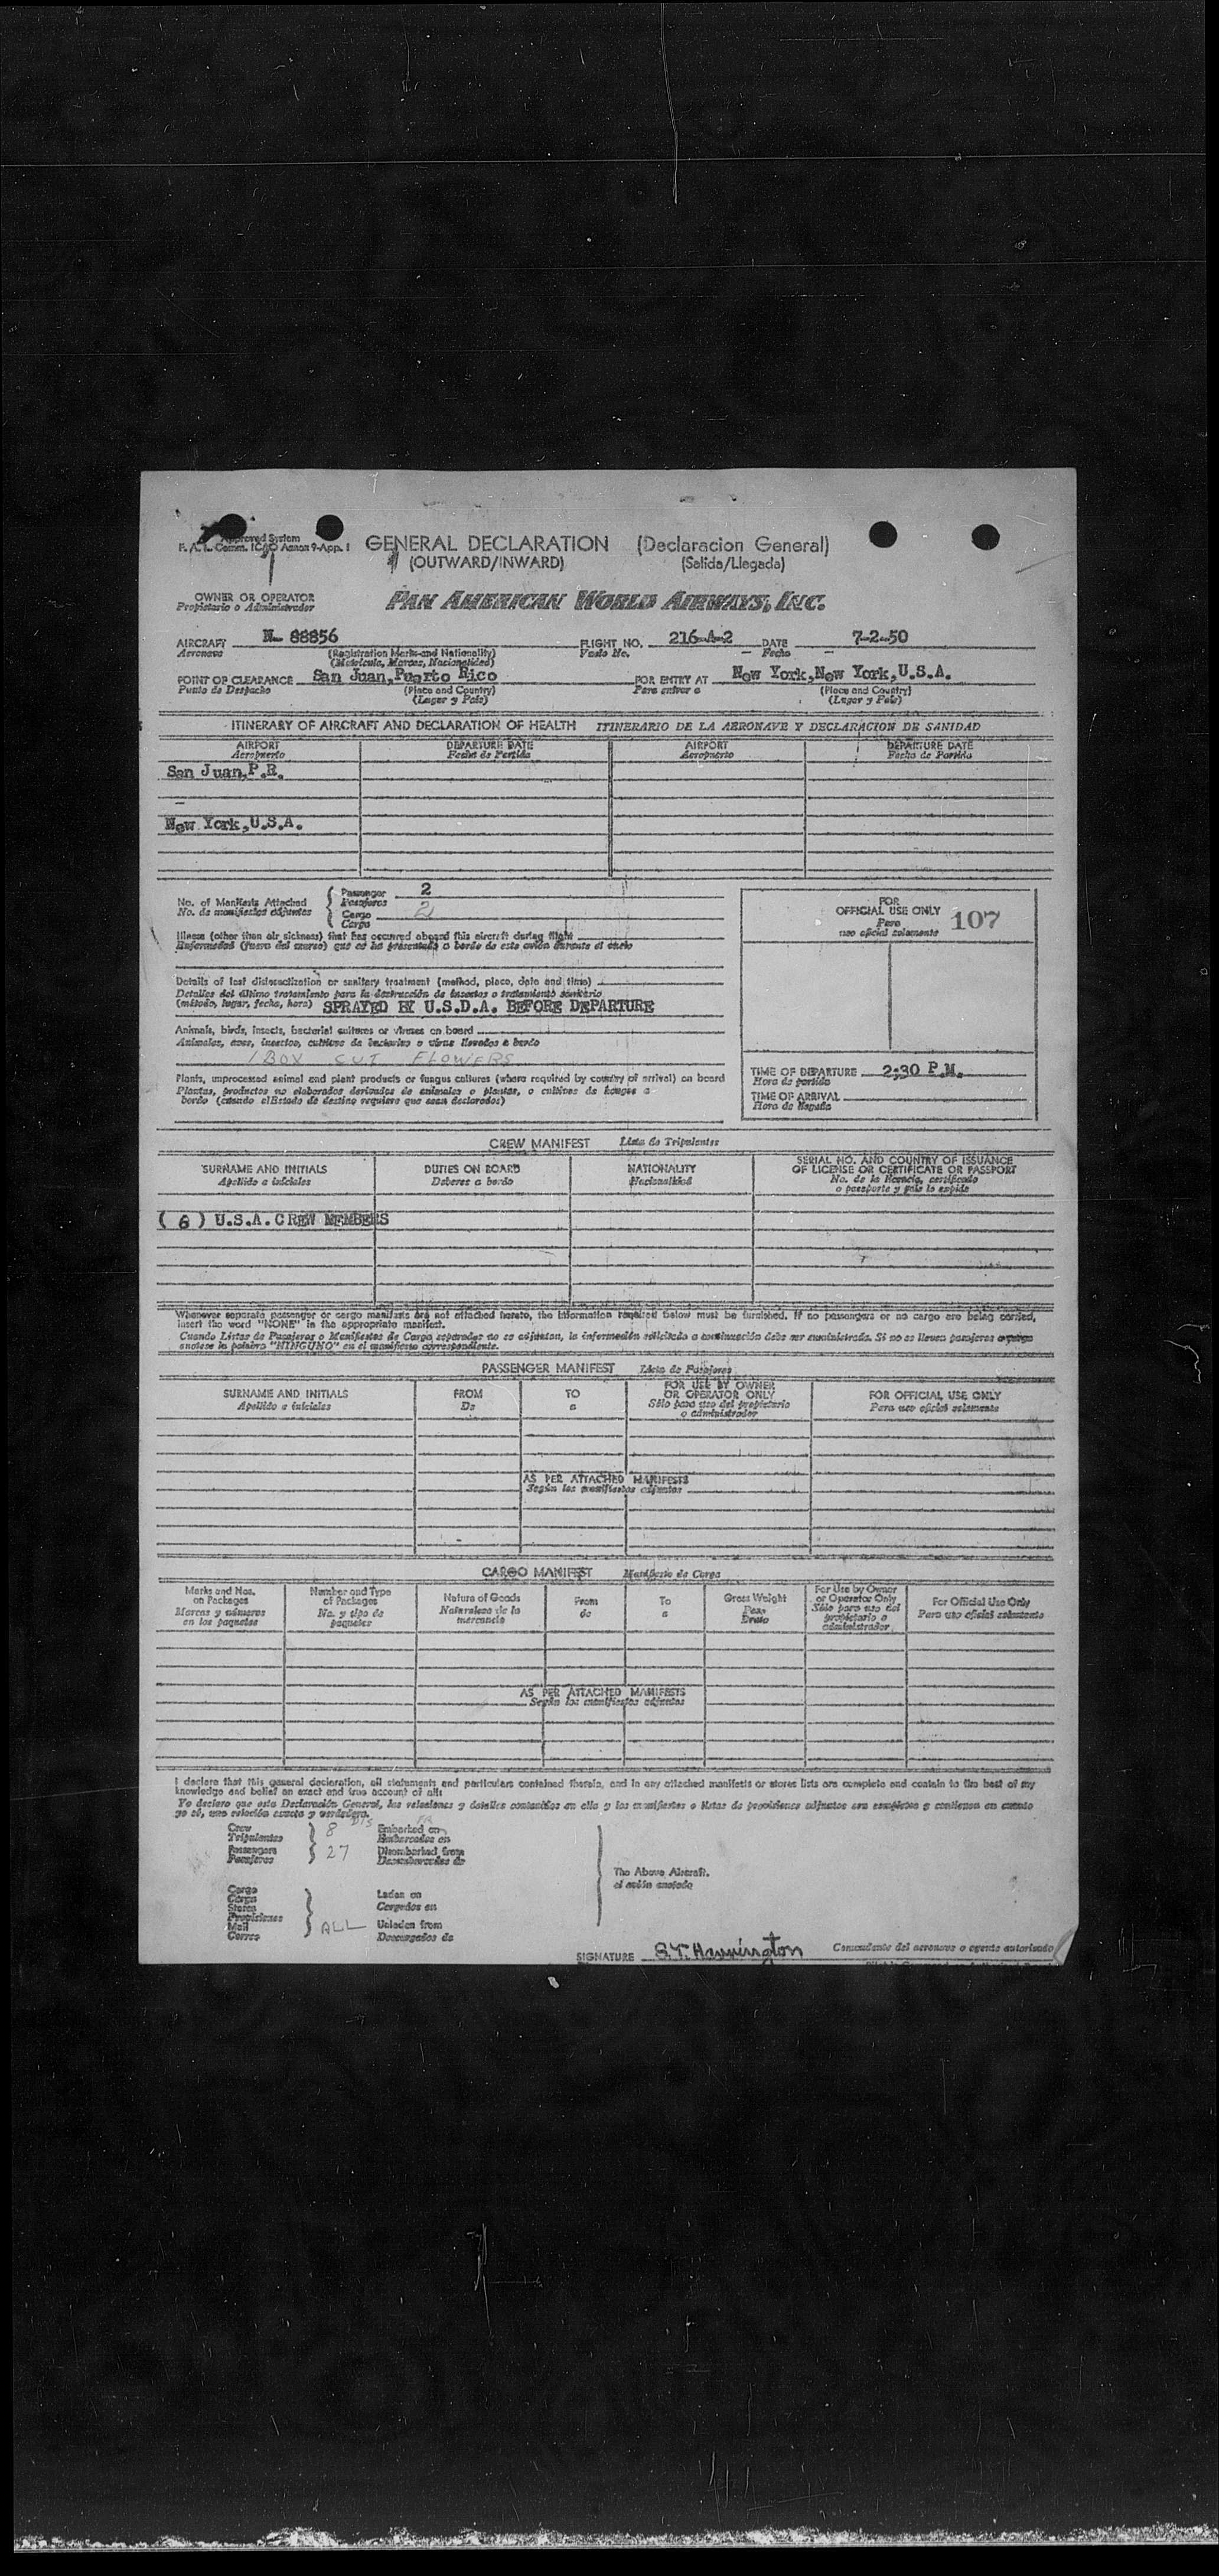 Approved System
F. A. L. Comm. ICAO Annex 9-App. 1
GENERAL DECLARATION (Declaracion General)
(OUTWARD/INWARD) (Salida/Llegada)
OWNER OR OPERATOR
Propietario o Administrador
PAN AMERICAN WORLD AIRWAYS, INC.
AIRCRAFT N- 88856 FLIGHT NO. 216-A-2 DATE 7-2-50
Aeronave (Registration Marks and Nationality) Vuelo No. Fecha
(Matricula, Marcas, Nacionalidad)
POINT OF CLEARANCE San Juan,Puerto Rico FOR ENTRY AT New York,New York,U.S.A.
Punto de Despacho (Place and Country) Para entrar a (Place and Country)
(Lugar y Pais) (Lugar y Pais)
ITINERARY OF AIRCRAFT AND DECLARATION OF HEALTH ITINERARIO DE LA AERONAVE Y DECLARACION DE SANIDAD
AIRPORT DEPARTURE DATE AIRPORT DEPARTURE DATE
Aeropuerto Fecha de Partida Aeropuerto Fecha de Partida
San Juan,P.R.
New York,U.S.A.
No. of Manifests Attached
No. de manifiestos adjuntos
Passenger 2
Pasajeros
Cargo 2
Carga
FOR
OFFICIAL USE ONLY 107
Para
uso oficial solamente
Illness (other than air sickness) that has occurred aboard this aircraft during flight
Enfermedad (fuera del mareo) que se ha presentado a bordo de este avión durante el vuelo
Details of last disinsectization or sanitary treatment (method, place, date and time)
Detalles del último tratamiento para la destrucción de insectos o tratamiento sanitario
(método, lugar, fecha, hora) SPRAYED BY U.S.D.A. BEFORE DEPARTURE
Animals, birds, insects, bacterial cultures or viruses on board
Animales, aves, insectos, cultivos de bacterias o virus llevados a bordo
1 BOX CUT FLOWERS
Plants, unprocessed animal and plant products or fungus cultures (where required by country of arrival) on board
Plantas, productos no elaborados derivados de animales o plantas, o cultivos de hongos a
bordo (cuando el Estado de destino requiere que sean declarados)
TIME OF DEPARTURE 2:30 P.M.
Hora de partida
TIME OF ARRIVAL
Hora de llegada
CREW MANIFEST Lista de Tripulantes
SURNAME AND INITIALS DUTIES ON BOARD NATIONALITY SERIAL NO. AND COUNTRY OF ISSUANCE
OF LICENSE OR CERTIFICATE OR PASSPORT
Apellido e iniciales Deberes a bordo Nacionalidad No. de la licencia, certificado
o pasaporte y pais lo expide
( 6 ) U.S.A.CREW MEMBERS
Whenever separate passenger or cargo manifests are not attached hereto, the information required below must be furnished. If no passengers or no cargo are being carried,
insert the word "NONE" in the appropriate manifest.
Cuando Listas de Pasajeros o Manifiestos de Carga separados no se adjuntan, la información solicitada a continuación debe ser suministrada. Si no se llevan pasajeros o carga
anotese la palabra "NINGUNO" en el manifiesto correspondiente.
PASSENGER MANIFEST Lista de Pasajeros
SURNAME AND INITIALS FROM TO FOR USE BY OWNER
OR OPERATOR ONLY FOR OFFICIAL USE ONLY
Apellido e iniciales De a Sólo para uso del propietario
o administrador Para uso oficial solamente
AS PER ATTACHED MANIFESTS
Según los manifiestos adjuntos
CARGO MANIFEST Manifiesto de Carga
Marks and Nos.
on Packages
Marcas y números
en los paquetes
Number and Type
of Packages
No. y tipo de
paquetes
Nature of Goods
Naturaleza de la
mercancia
From
de
To
a
Gross Weight
Peso
Bruto
For Use by Owner
or Operator Only
Sólo para uso del
propietario o
administrador
For Official Use Only
Para uso oficial solamente
AS PER ATTACHED MANIFESTS
Según los manifiestos adjuntos
I declare that this general declaration, all statements and particulars contained therein, and in any attached manifests or stores lists are complete and contain to the best of my
knowledge and belief an exact and true account of all:
Yo declaro que esta Declaración General, las relaciones y detalles contenidos en ella y los manifiestos o listas de provisiones adjuntos son completos y contienen en cuanto
yo sé, una relación exacta y verdadera.
Crew 8 DIS Embarked on
Tripulantes Embarcados en
Passengers 27 Disembarked from
Pasajeros Desembarcados de
The Above Aircraft.
el avión anotado
Cargo
Carga
Stores
Provisiones
Mail
Correo
ALL
Laden on
Cargados en
Unladen from
Descargados de
SIGNATURE S.T. Harrington Comandante del aeronave o agente autorizado